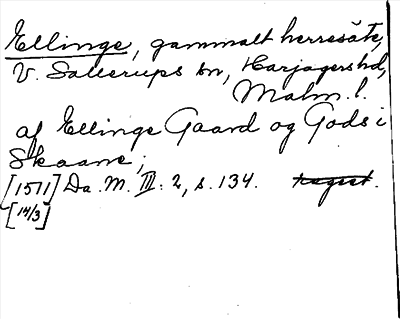 Ellinge, gammalt herresäte,
V. Sallerups sn, Harjagers hd,
Malm. l.
af Ellinge Gaard og Gods i
Skaane;
[1511] Da. M. III. 2, s. 134. regest.
[14/3]